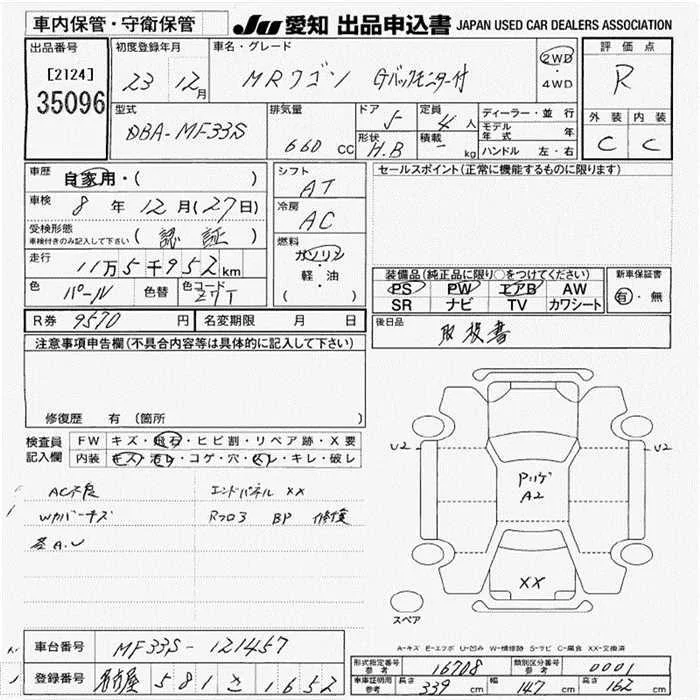 車内保管・守衛保管
JU 愛知 出品申込書 JAPAN USED CAR DEALERS ASSOCIATION
出品番号
[2124]
35096
初度登録年月
23 12月
車名・グレード
MRワゴン Gバックモニター付
2WD
・
4WD
評価点
R
外装 内装
C C
型式
DBA-MF33S
排気量
660 CC
ドア
5
形状
H.B
定員
4 人
積載
- kg
ディーラー・並行
モデル年式 年
ハンドル 左・右
車歴
自家用・( )
車検
8 年 12 月 (27日)
受検形態
車検付きのみ記入して下さい
(認証)
走行
11万5千952km
色
パール
色替
色コード
Z7T
シフト
AT
冷房
AC
燃料
ガソリン
・
軽・油
( )
セールスポイント(正常に機能するものに限ります)
装備品(純正品に限り○をつけてください)
PS PW エアB AW
SR ナビ TV カワシート
新車保証書
有・無
R券 9570 円
名変期限 月 日
後日品
取扱書
注意事項申告欄(不具合内容等は具体的に記入して下さい)
修復歴 有 (箇所 )
検査員
記入欄
FW キズ・飛石・ヒビ割・リペア跡・X要
内装 キズ・汚レ・コゲ・穴・スレ・キレ・破レ
AC不良 エンドパネル XX
Wカバーキズ Rフロア BP 修復
U2
U2
Pリゲ
A2
XX
スペア
A-キズ E-エクボ U-凹み W-補修跡 S-サビ C-腐食 XX-交換済
車台番号 MF33S-121457
登録番号 名古屋 581 さ 1652
形式指定番号
参考
16708
類別区分番号
参考
0001
車庫証明用
参考
長さ
339 cm
幅
147 cm
高さ
162 cm